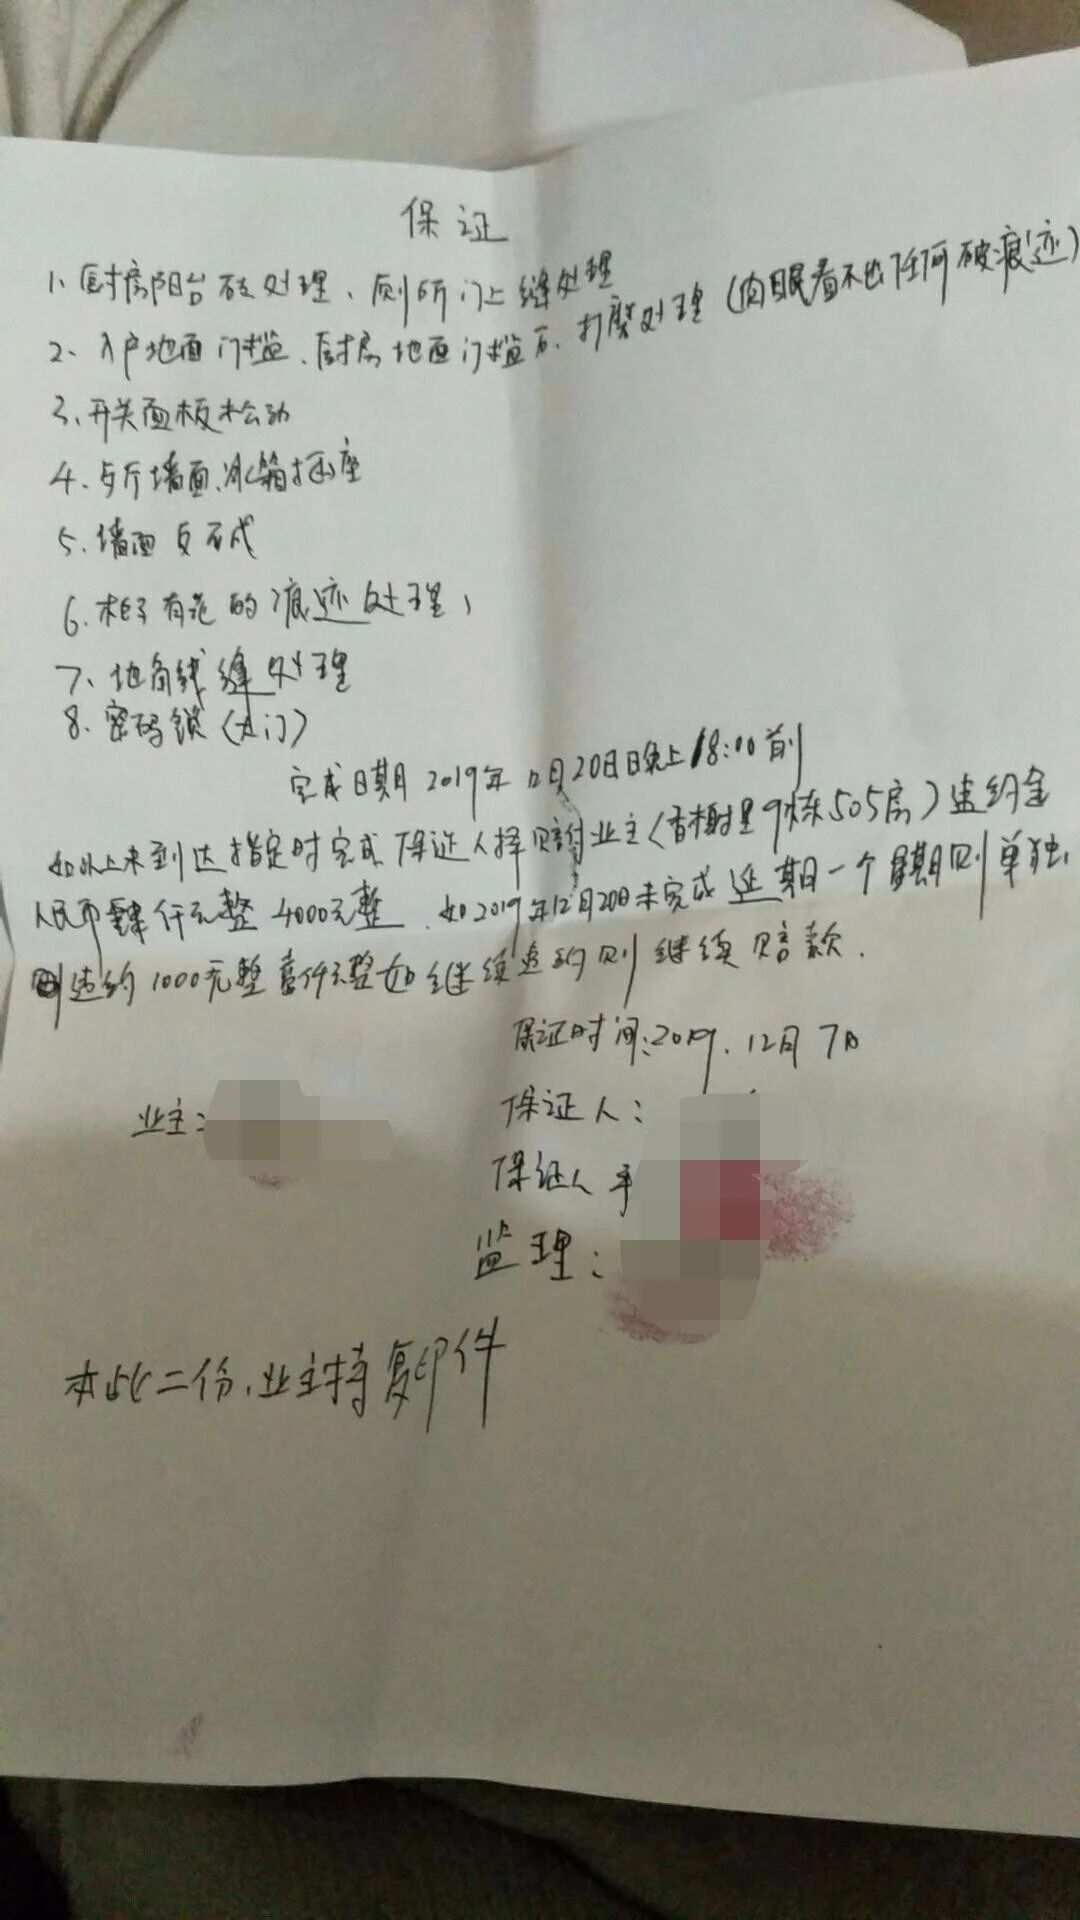 保证
1、厨房阳台砖处理、厕所门上缝处理
2、入户地面门槛、厨房地面门槛石、打磨处理（肉眼看不出任何破痕迹）
3、开关面板松动
4、与厅墙面、冰箱插座
5、墙面反碱
6、柜子有范的痕迹处理，
7、地角线缝处理
8、密码锁（大门）
完成日期2019年12月20日晚上18:00前
如以上未到达指定时完成保证人择赔付业主（香榭里9栋505房）违约金
人民币肆仟元整4000元整、如2019年12月20日未完成延期一个星期则单独
则违约1000元整壹仟元整如继续违约则继续赔款.
保证时间:2019.12月7日
业主:
保证人:
保证人手
监理:
本此二份、业主持复印件